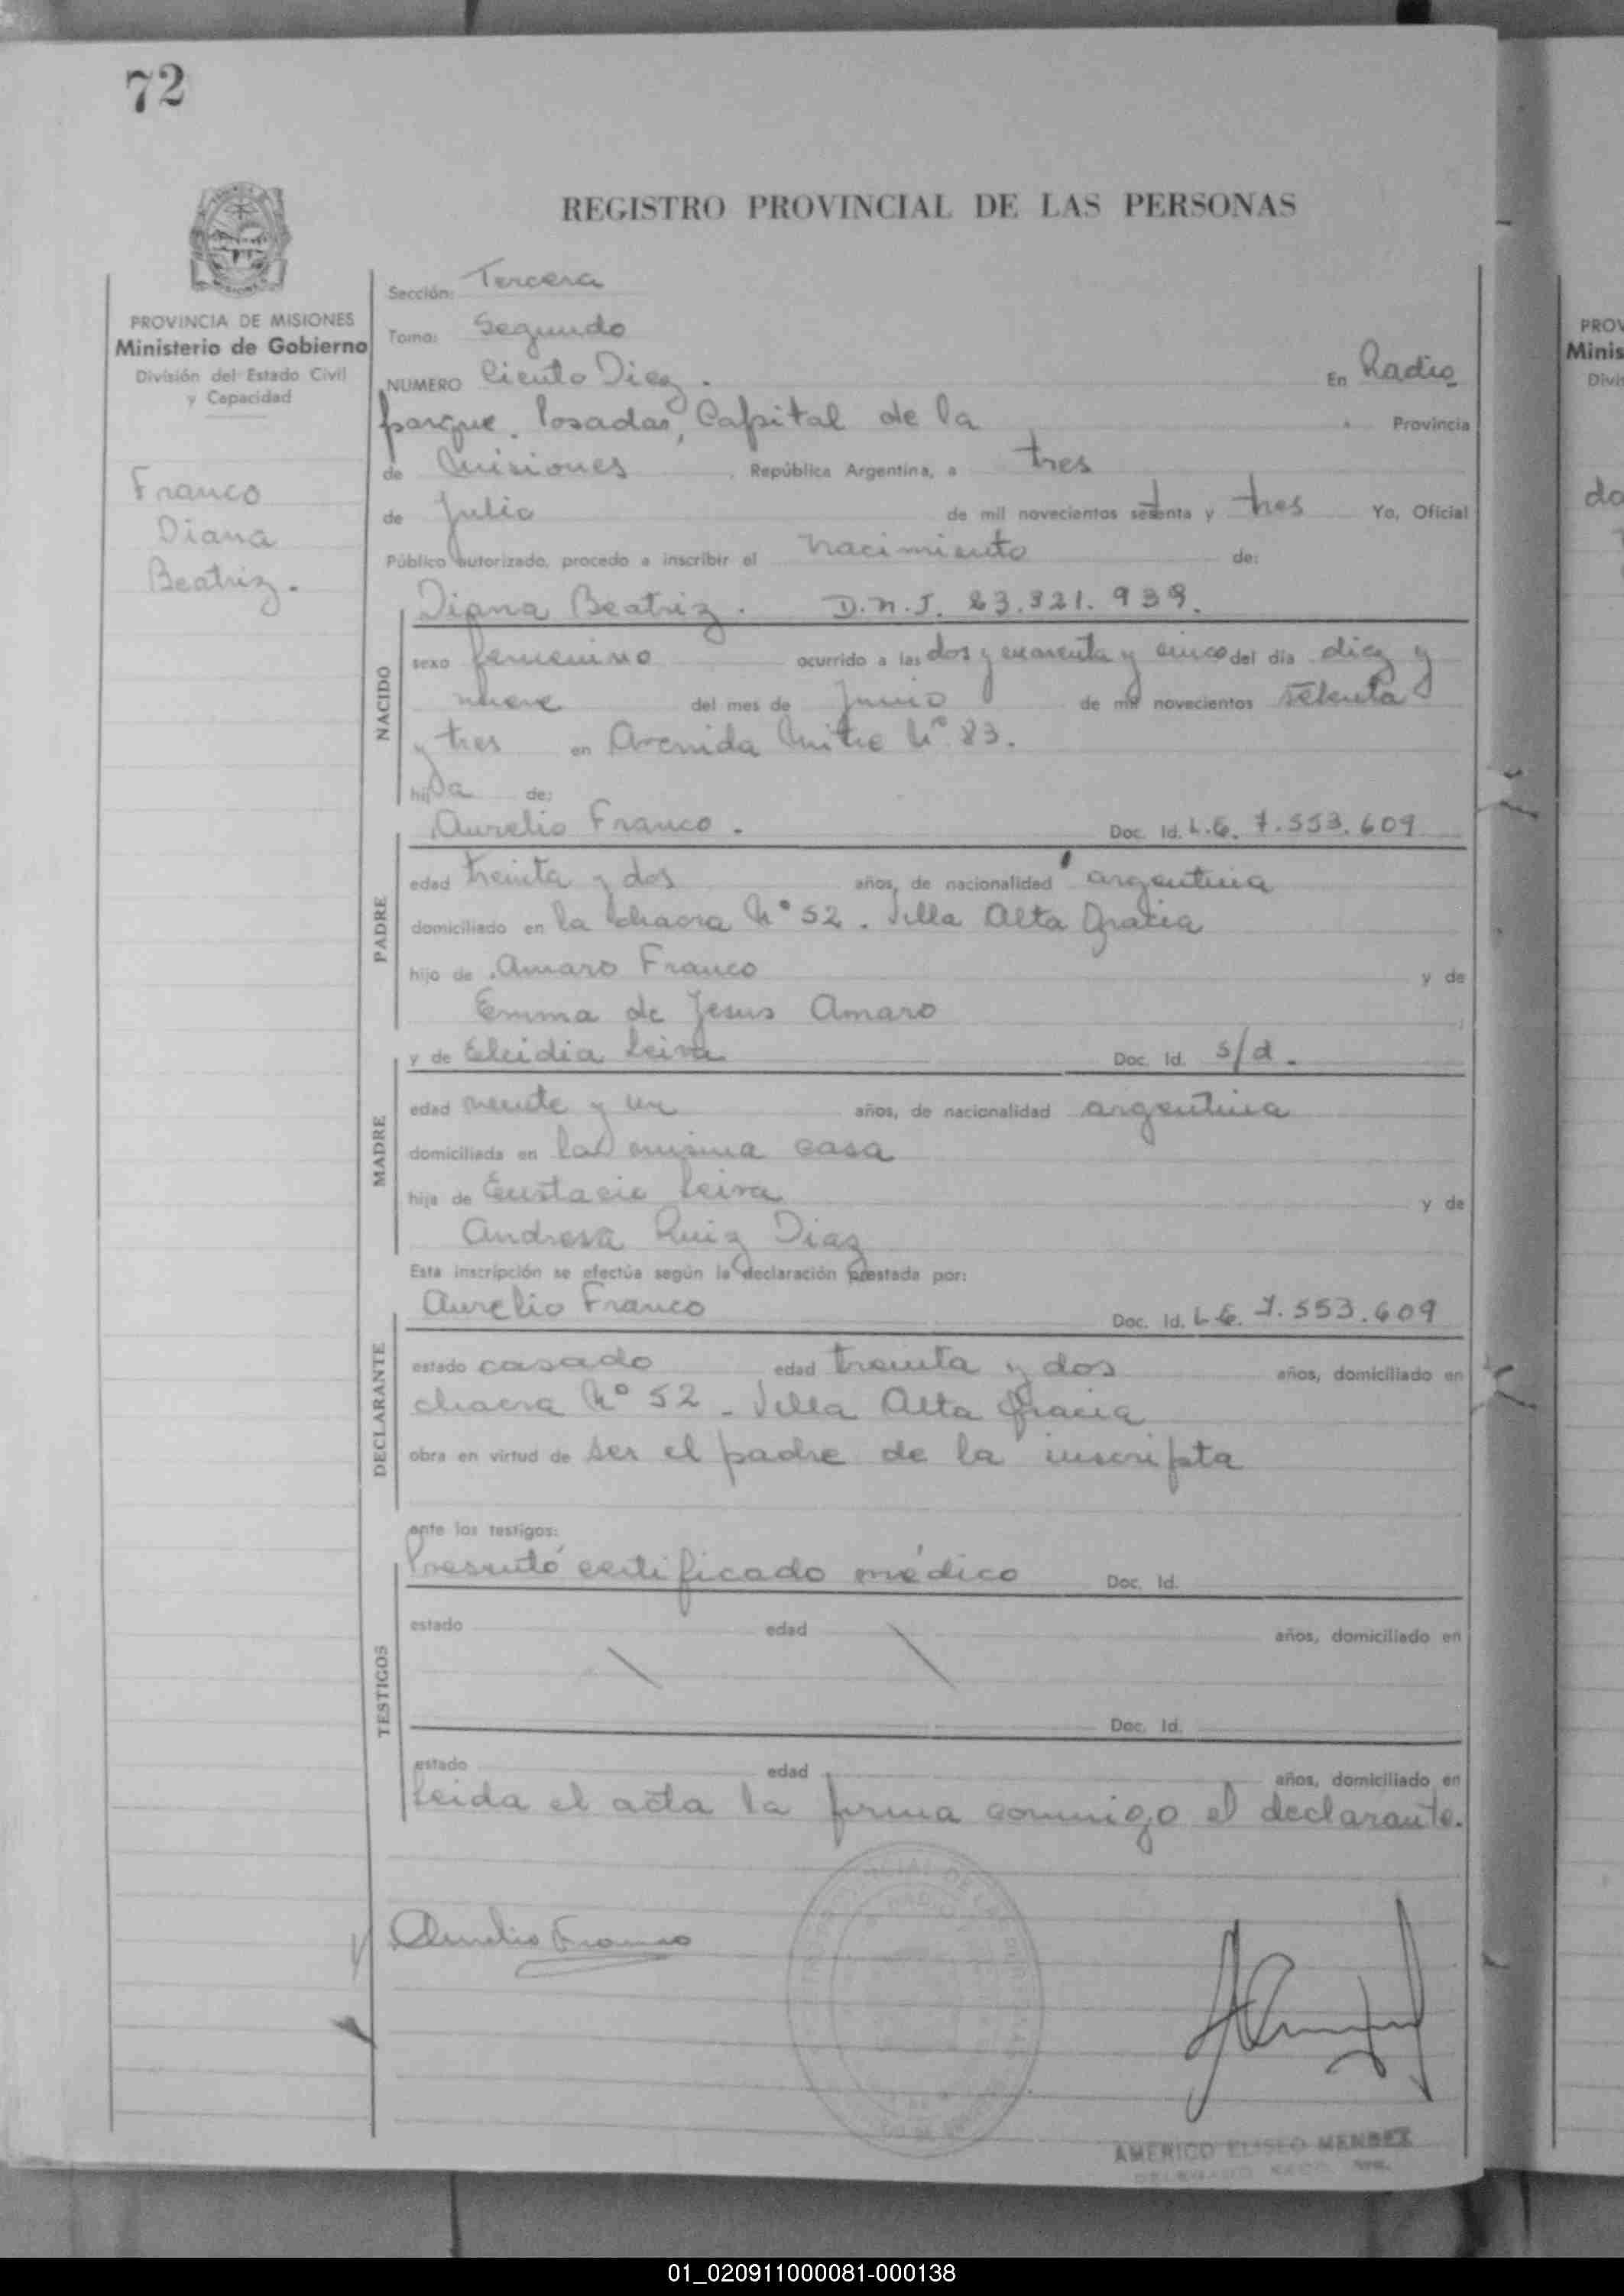 72
REGISTRO PROVINCIAL DE LAS PERSONAS
PROVINCIA DE MISIONES
Ministerio de Gobierno
División del Estado Civil
y Capacidad
Franco
Diana
Beatriz.
Sección: Tercera
Tomo: Segundo
NUMERO Ciento Diez. En Radio
parque. Posadas, Capital de la Provincia
de Misiones, República Argentina, a tres
de Julio de mil novecientos setenta y tres Yo, Oficial
Público autorizado, procedo a inscribir el nacimiento de:
Diana Beatriz. D.N.I. 23.321.939.
NACIDO
sexo femenino ocurrido a las dos y cuarenta y cinco del día diez y
nueve del mes de Junio de mil novecientos setenta
y tres en Avenida Mitre Nº 83.
hija de:
Aurelio Franco. Doc. Id. L.E. 7.553.609
PADRE
edad treinta y dos años, de nacionalidad argentina
domiciliado en la chacra Nº 52. Villa Alta Gracia
hijo de Amaro Franco y de
Emma de Jesus Amaro
y de Elcidia Leiva Doc. Id. s/d.
MADRE
edad veinte y un años, de nacionalidad argentina
domiciliada en la misma casa
hija de Eustacio Leiva y de
Andresa Ruiz Diaz
Esta inscripción se efectúa según la declaración prestada por:
Aurelio Franco Doc. Id. L.E. 7.553.609
DECLARANTE
estado casado edad treinta y dos años, domiciliado en
chacra Nº 52 - Villa Alta Gracia
obra en virtud de ser el padre de la inscripta
ante los testigos:
Presentó certificado médico Doc. Id.
TESTIGOS
estado edad años, domiciliado en
Doc. Id.
estado edad años, domiciliado en
Leida el acta la firma conmigo el declarante.
Aurelio Franco
AMERICO ELISEO MENDEZ
PROV
Minis
Divi
do
01_020911000081-000138